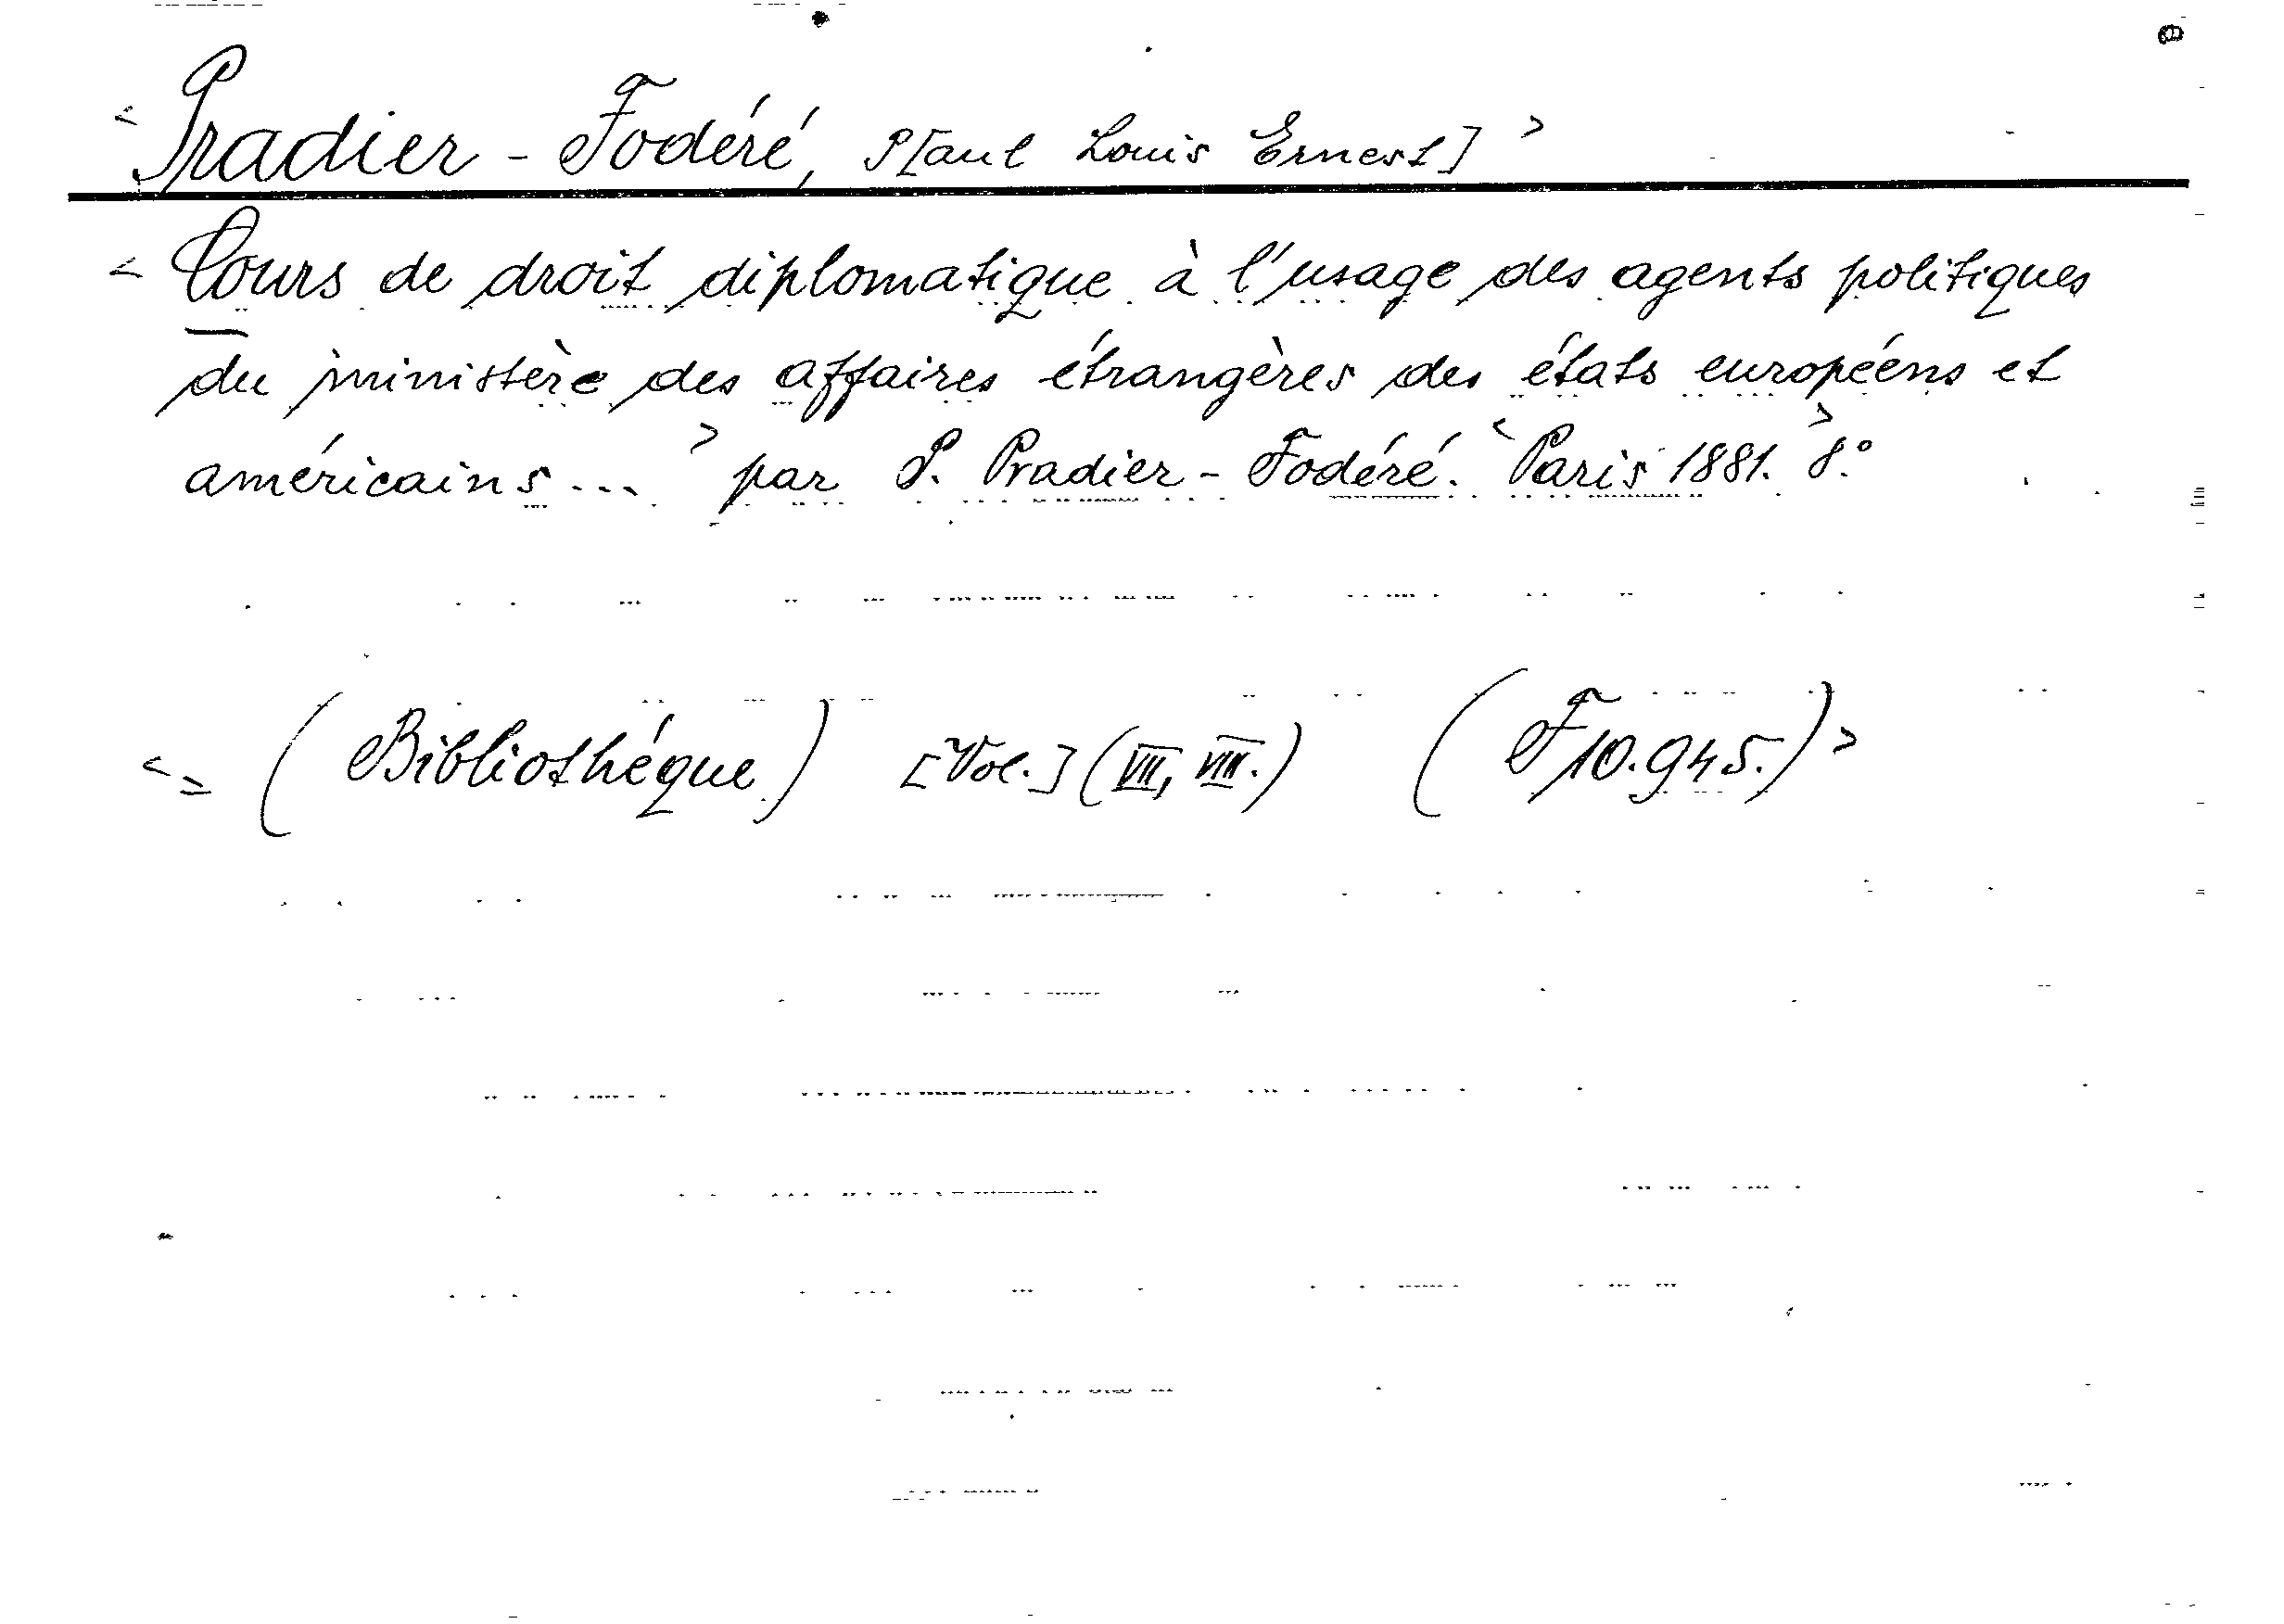 < Pradier - Fodéré, P[aul Louis Ernest] >
< Cours de droit diplomatique à l'usage des agents politiques
du ministère des affaires étrangères des états européens et
américains ... > par P. Pradier - Fodéré. < Paris 1881. > 8.°
< = (Bibliothéque) [Vol.] (VII, VIII.) (F 10.945.) >